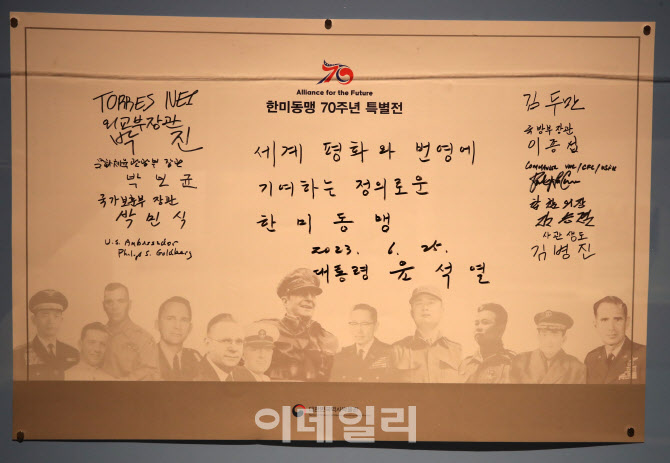 70
Alliance for the Future
한미동맹 70주년 특별전
TORRES NE
외교부장관
박 진
문화체육관광부 장관
박 보 균
국가보훈부 장관
박 민 식
U.S. Ambassador
Philip S. Goldberg
세계 평화와 번영에
기여하는 정의로운
한미동맹
2023. 6. 25.
대통령 윤석열
김두만
국방부장관
이종섭
Commander UNC/CFC/USFK
합참의장
김승겸
사관생도
김병진
이데일리